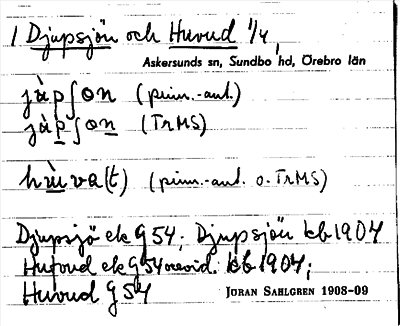 1 Djupsjön och Huvud 1/4,
Askersunds sn, Sundbo hd, Örebro län
jùpʃon (prim.-ant.)
jùpʃon (TrMS)
hùva(t) (prim.-ant. o. TrMS)
Djupsjö ek G 54; Djupsjön kb 1904
Hufvud ek G 54 orevid. kb 1904;
Huvud G 54
JÖRAN SAHLGREN 1908-09